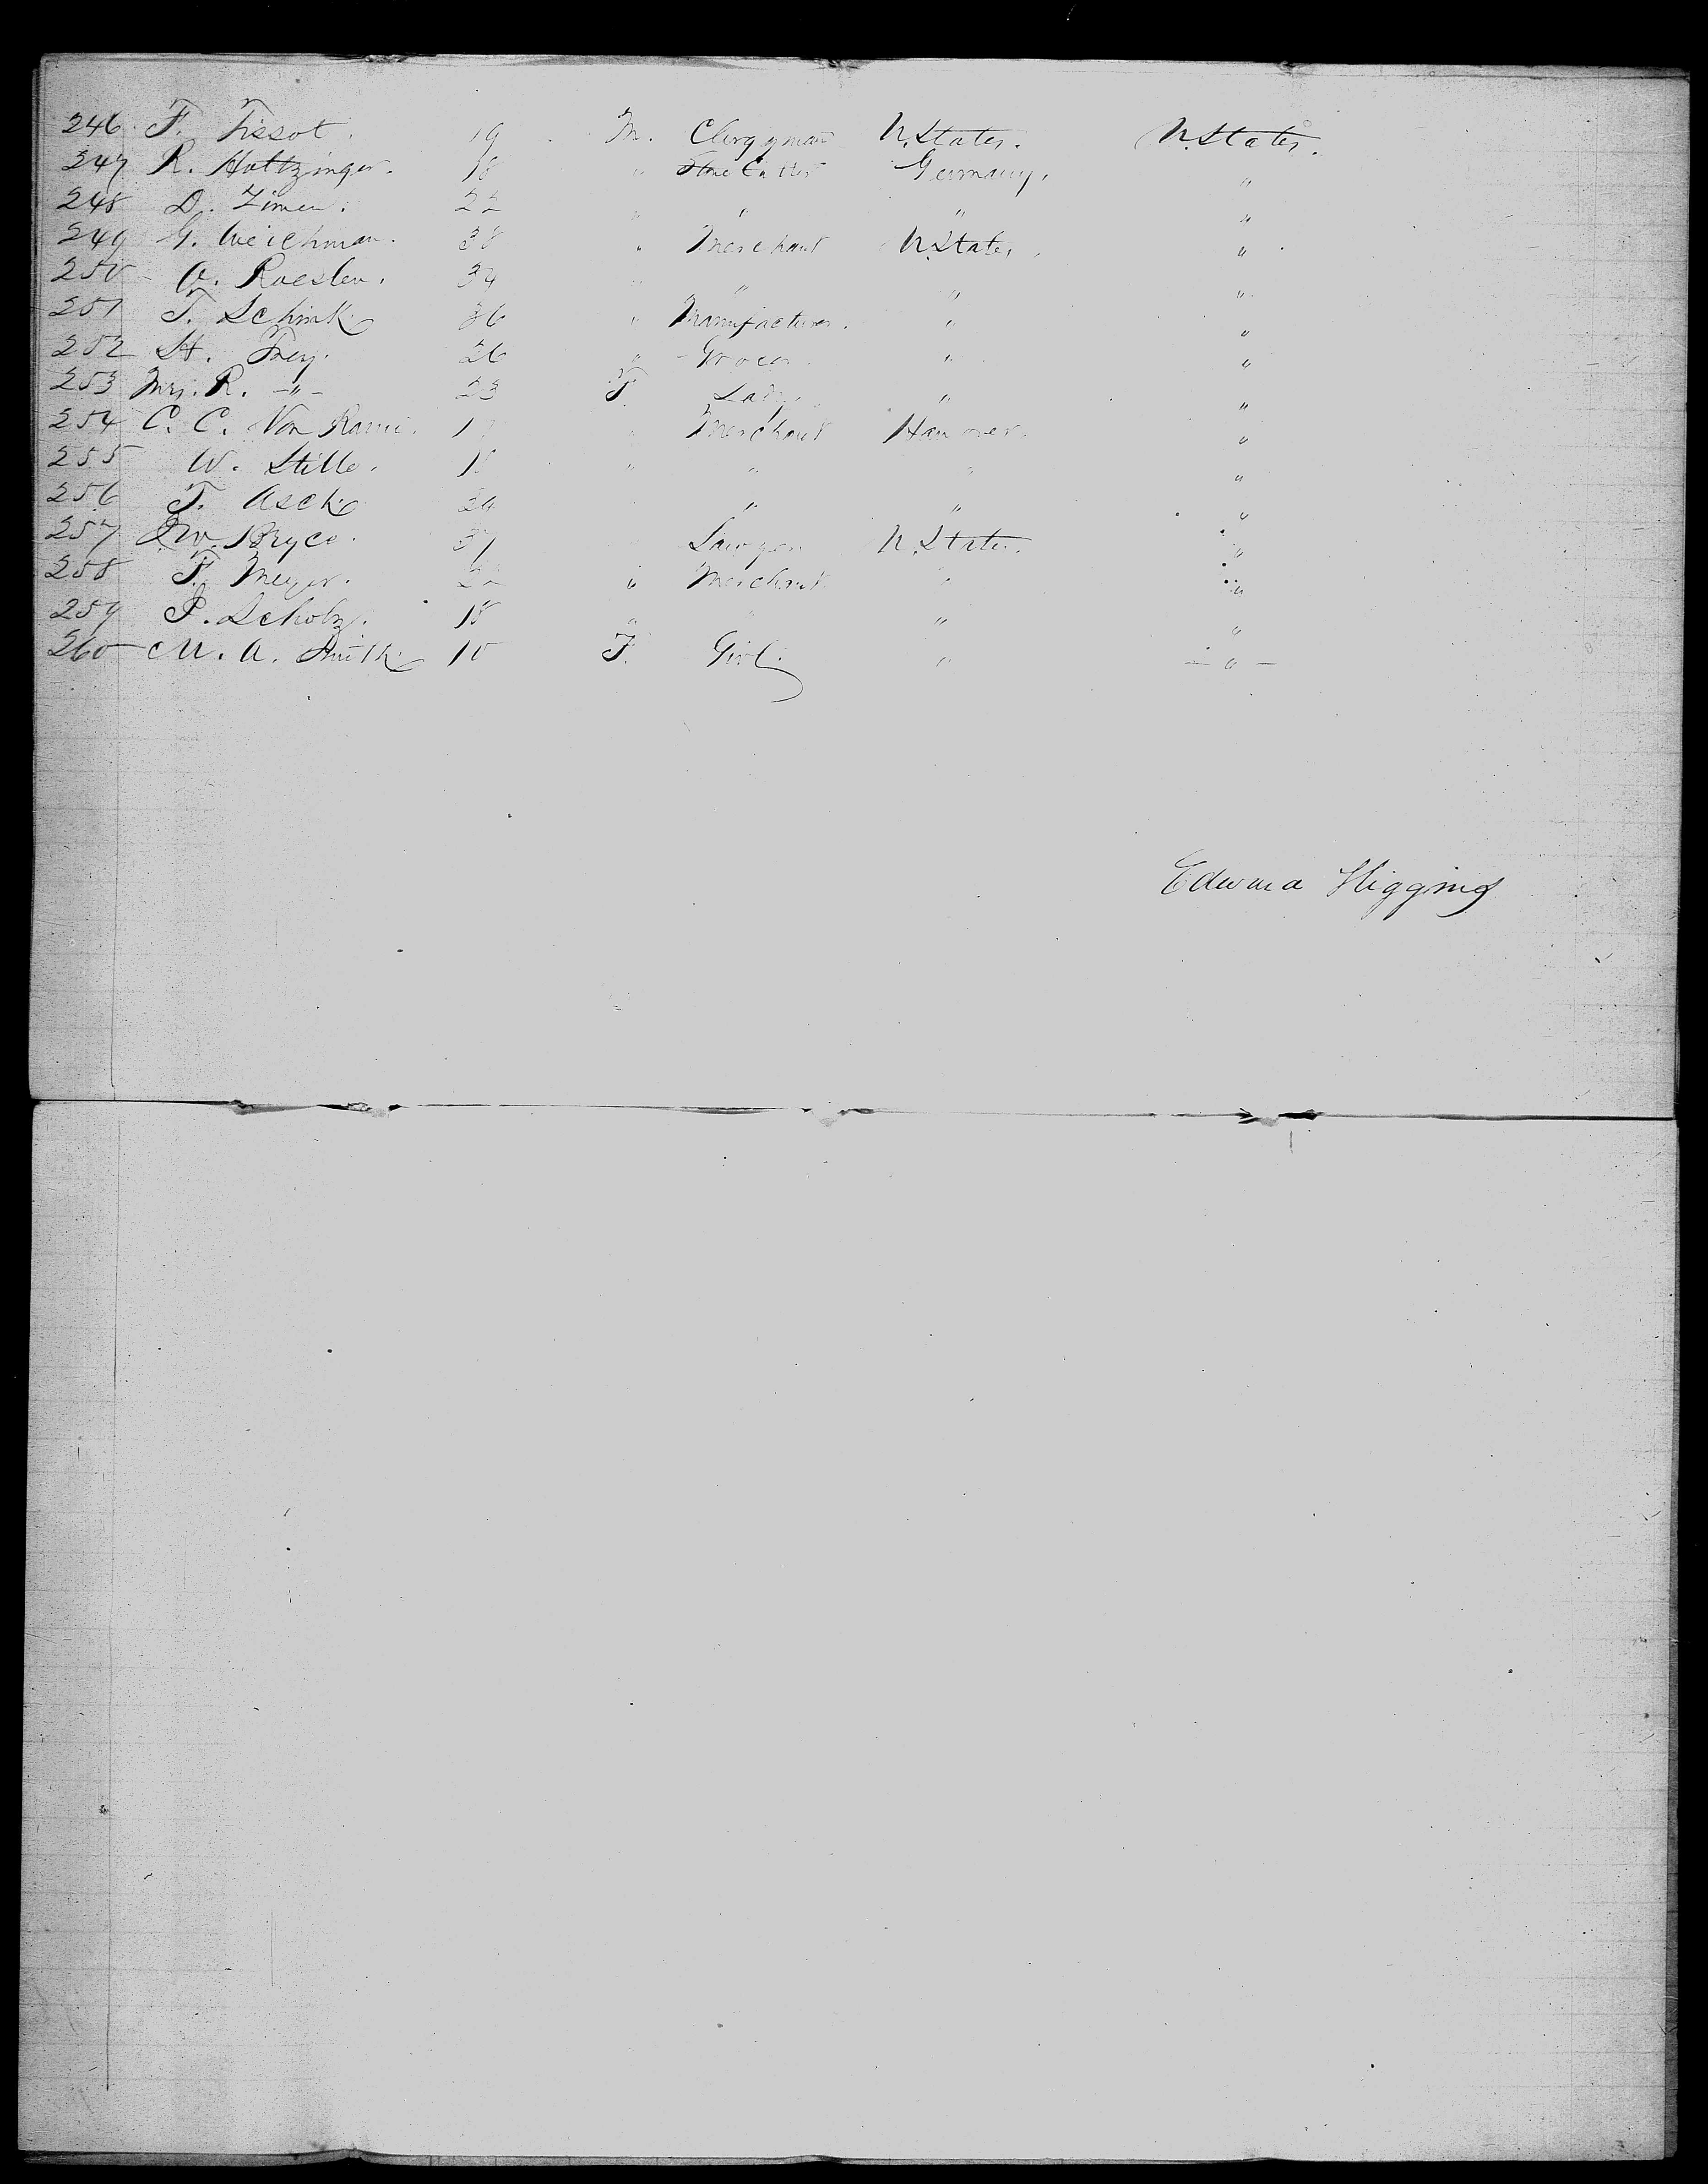 246 F. Tissot. 19 M. Clergyman U. States. U. States.
247 R. Holtzinger. 18 " Stone Cutter Germany. "
248 D. Zimen. 22 " " " "
249 G. Weichman. 38 " Merchant U. States. "
250 A. Roesler. 34 " " " "
251 T. Schink 36 " Manufacturer. " "
252 H. Frey. 26 " Grocer. " "
253 Mrs. R. -"- 23 F. Lady. " "
254 C. C. Von " Merchant Hanover. "
255 W. Stille. " " " "
256 T. Asch " " "
257 W. Bryce. 31 Lawyer U. States. "
258 F. Meyer. 22 " Merchant " "
259 P. Scholz. 18 " " " "
260 M. A. Smith 10 F. Girl. " - " -
Edward Higgins